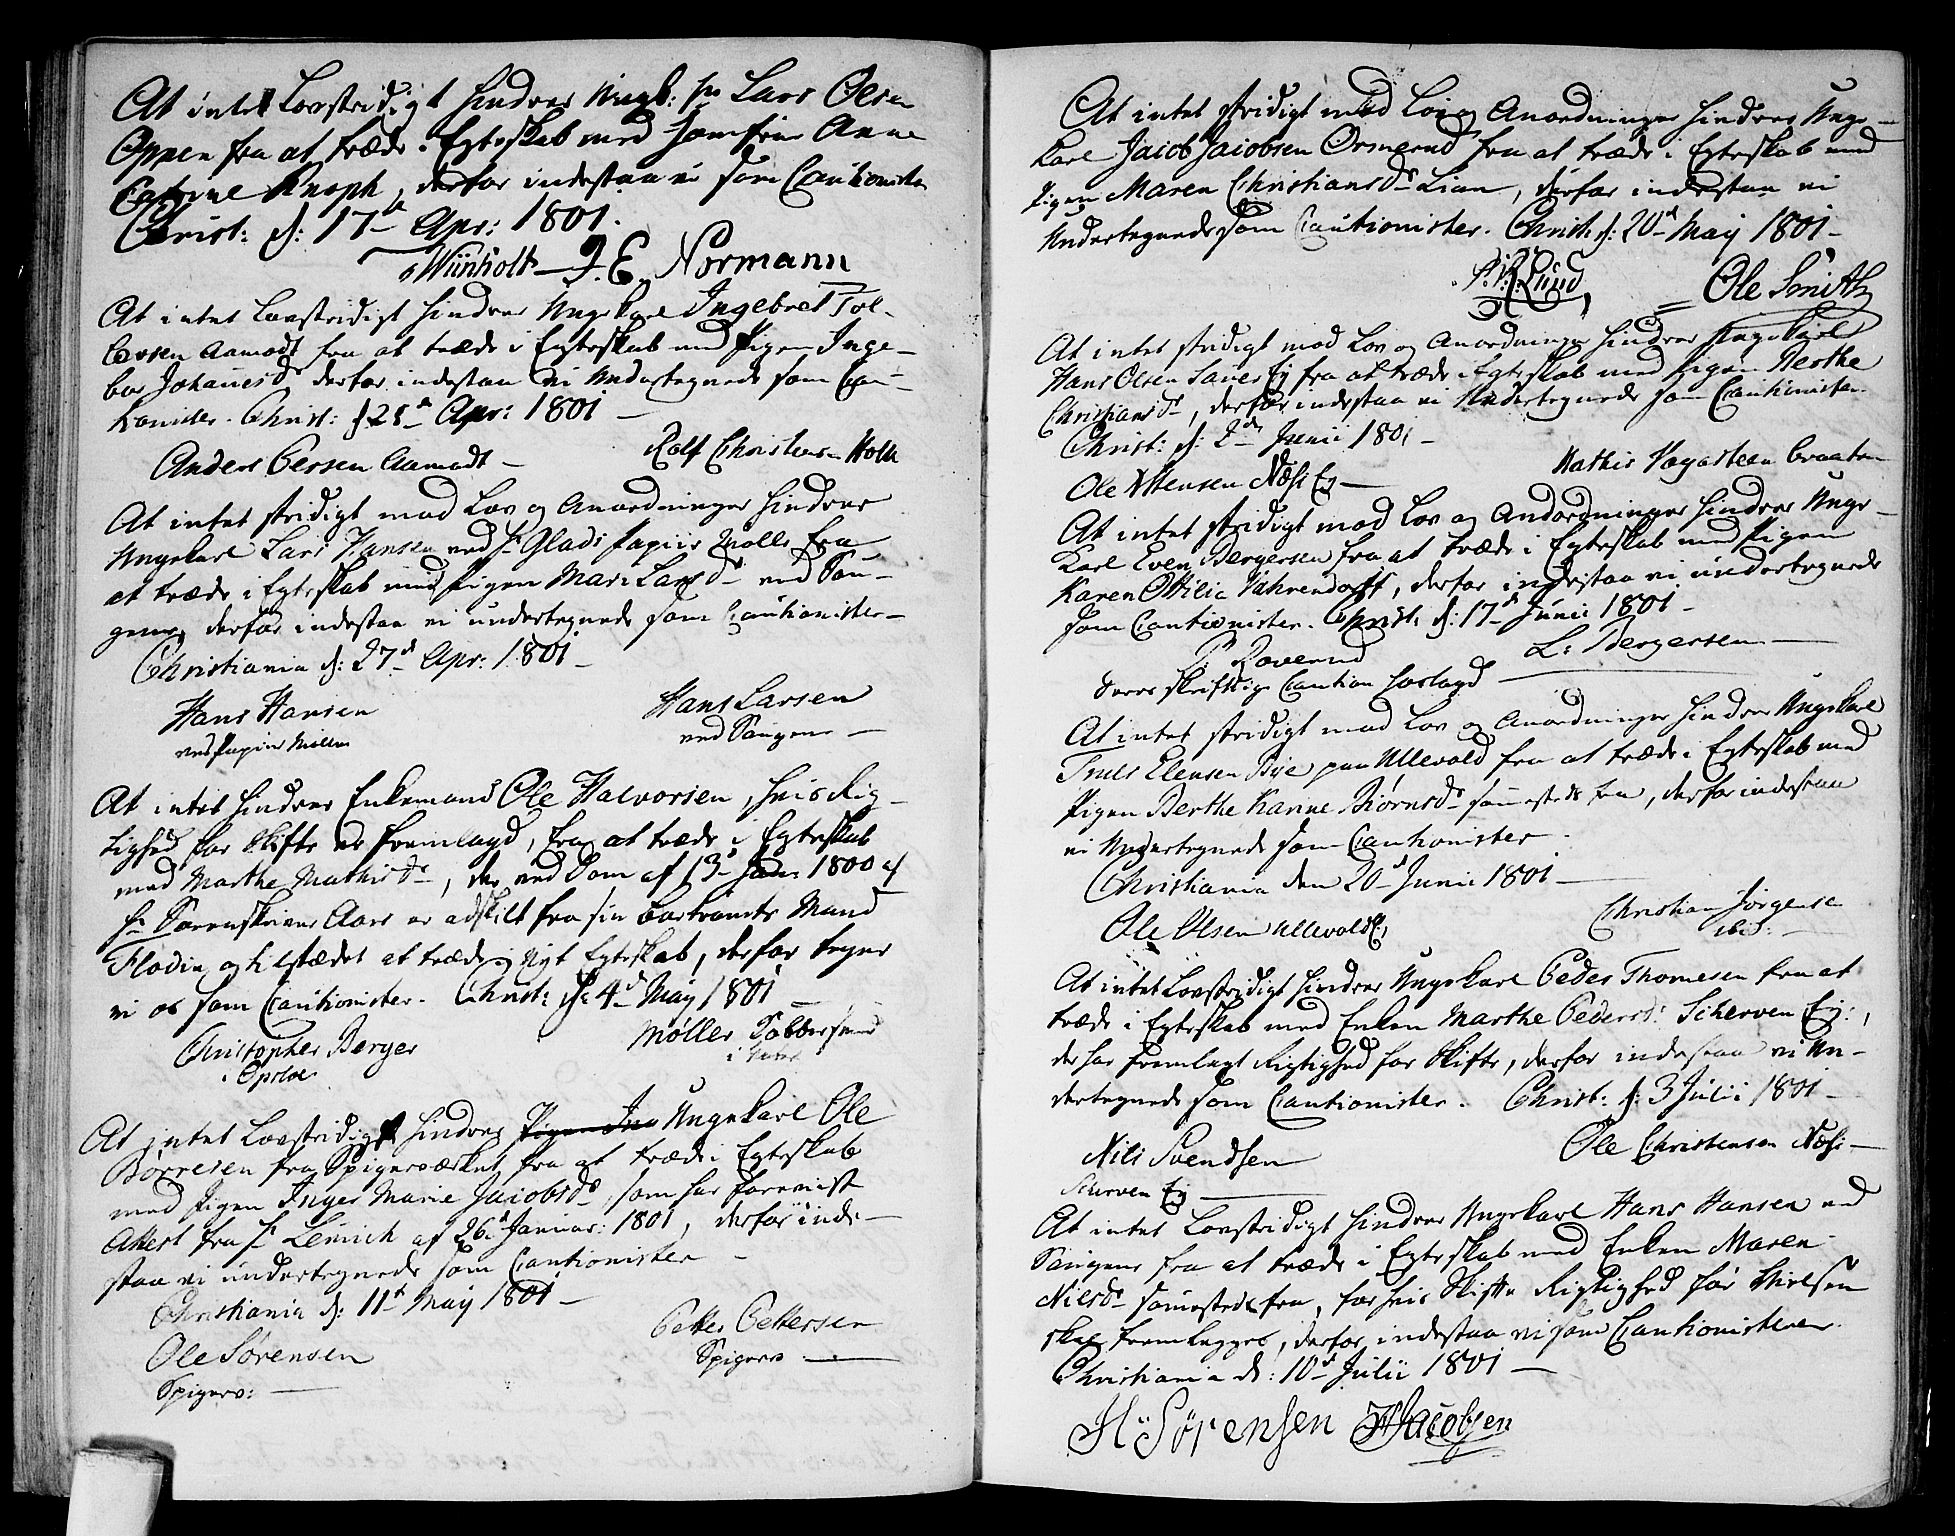 At intet Lovstridigt hindrer Ungk: Hr Lars Olsen
Oppen fra at træde i Egteskab med Jomfrue Anne
Catrine Knoph, derfor indestaa vi som Cautionister
Christ: d: 17de Apr: 1801.
Wiinholt J. E. Normann
At intet Lovstridigt hindrer Ungekarl Ingebret Tol-
levsen Aamodt fra at træde i Egteskab med Pigen Inge-
bor Johanesdr derfor indestaa vi Undertegnede som Cau-
tionister. Christ: d 21de Apr: 1801
Anders Persen Aamodt Rolf Christensen Holk
At intet stridigt mod Lov og Anordninger hindrer
Ungekarl Lars Hansen ved Hr Glads Papiir Mølle fra
at træde i Egteskab med Pigen Mari Larsdr ved Sau-
gene, derfor indestaa vi undertegnede som Cautionister
Christiania d: 27de Apr: 1801
Hans Hansen Hans Larsen
ved Papiir Møllen ved Saugene
At intet hindrer Enkemand Ole Halvorsen, hvis Rig-
tighed for Skifte er fremlagd, fra at træde i Egteskab
med Marthe Mathisdr, der ved Dom af 13de 1800 af
Hr Sorenskriver Aars er adskilt fra sin bortrømte Mand
Flodin og tilstædet at træde i Nyt Egteskab, derfor tegner
vi os som Cautionister. Christ: d: 4de May 1801
Christopher Berger Møller
i Opsloe
At intet Lovstridigt hindrer Pigen Ungekarl Ole
Børresen fra Spigerværket fra at træde i Egteskab
med Pigen Inger Marie Jacobsdr, som har foreviist
Attest fra Hr Lemich af 26de Januar: 1801, derfor inde-
staa vi undertegnede som Cautionister
Christiania d: 11te May 1801
Ole Sørensen Petter Pettersen
Spigerv: Spigerv
At intet stridigt mod Lov og Anordninger hindrer Unge-
karl Jacob Jacobsen Ormerud fra at træde i Egteskab med
Pigen Maren Christiansdr Lian, derfor indestaa vi
Undertegnede som Cautionister. Christ: d: 20de May 1801
Lund Ole Smith
At intet stridigt mod Lov og Anordninger hindrer Ungekarl
Hans Olsen Eg fra at træde i Egteskab med Pigen Berthe
Christiansdr, derfor indestaa vi Undertegnede som Cautionister
Christ: d: 2den Junii 1801
Ole Næss Eg Mathis braaten
At intet stridigt mod Lov og Andordninger hindrer Unge-
Karl Even Bergersen fra at træde i Egteskab med Pigen
Karen Ottilia Vahrendorff, derfor indestaa vi undertegnede
som Cautionister. Christ: d: 17de Junii 1801
P. Roverud L: Bergersen
deres skriftlige Caution forlagd
At intet stridigt mod Lov og Anordninger hindrer Ungekarl
Truls Elensen Bye paa Ullevold fra at træde i Egteskab med
Pigen Berthe Karine Biørnsdr sammesteds fra, derfor indestaa
vi Undertegnede som Cautionister
Christiania den 20de Junii 1801
Ole Olsen Ullevold Christian Jørgensen
ibid:
At intet Lovstridigt hindrer Ungekarl Peder Thomesen fra at
træde i Egteskab med Enken Marthe Pedersd: Scherven Eg:,
der har fremlagt Rigtighed for Skifte, derfor indestaa vi Un-
dertegnede som Cautionister. Christ: d: 3 Julii 1801
Nils Svendsen Ole Christensen Næss
Scherven Eg
At intet Lovstridigt hindrer Ungekarl Hans Hansen ved
Saugene fra at træde i Egteskab med Enken Maren
Nilsdr sammesteds fra, for hvis Skifte Rigtighed før Vielsen
skal fremlegges, derfor indestaa vi som Cautionisterer
Christiania d: 10de Julii 1801
H: Sørensen H Jacobsen